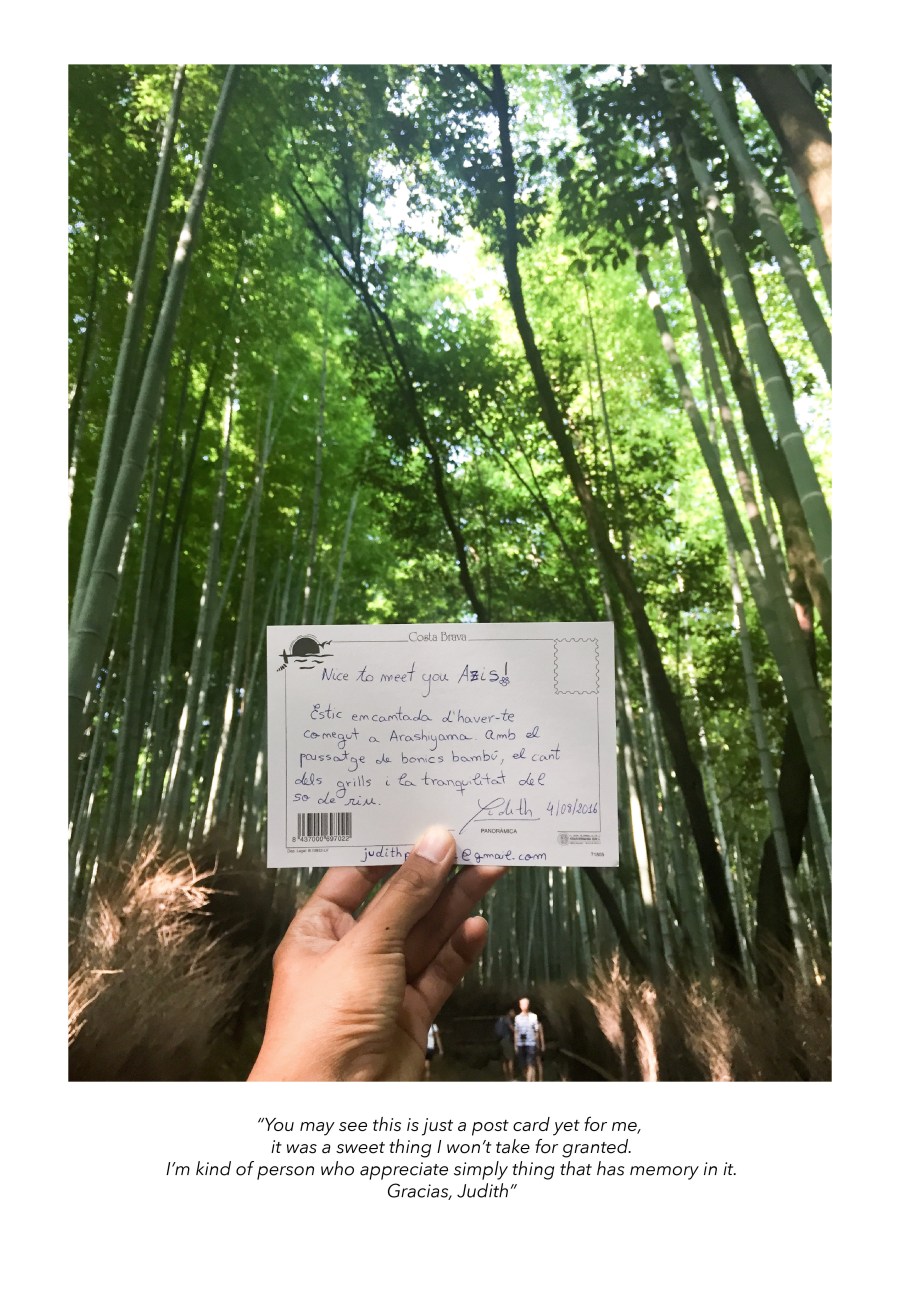 Costa Brava
Nice to meet you Azis!
Estic encantada d'haver-te
conegut a Arashiyama. Amb el
paissatge de bonics bambú, el cant
dels grills i la tranquilitat del
so de riu.
Judith 4/08/2016
PANORÀMICA
8 437000 697022
judithp @gmail.com
“You may see this is just a post card yet for me,
it was a sweet thing I won’t take for granted.
I’m kind of person who appreciate simply thing that has memory in it.
Gracias, Judith”